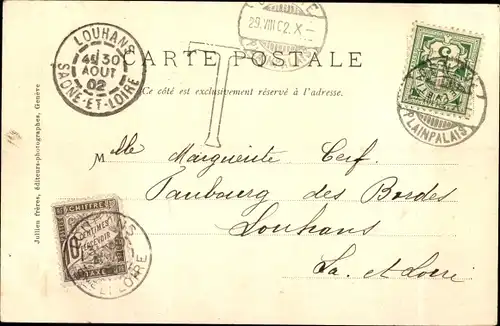 LOUHANS
4E 30
AOUT
02
SAONE-ET-LOIRE
29.VIII 02.X-
CARTE POSTALE
Ce côté est exclusivement réservé à l'adresse.
T
PLAINPALAIS
Mlle Marguerite Cerf.
Faubourg des Bordes
Louhans
Sa. et Loire
CHIFFRE
CENTIMES
A PERCEVOIR
TAXE
ET-LOIRE
Jullien frères, éditeurs-photographes, Genève